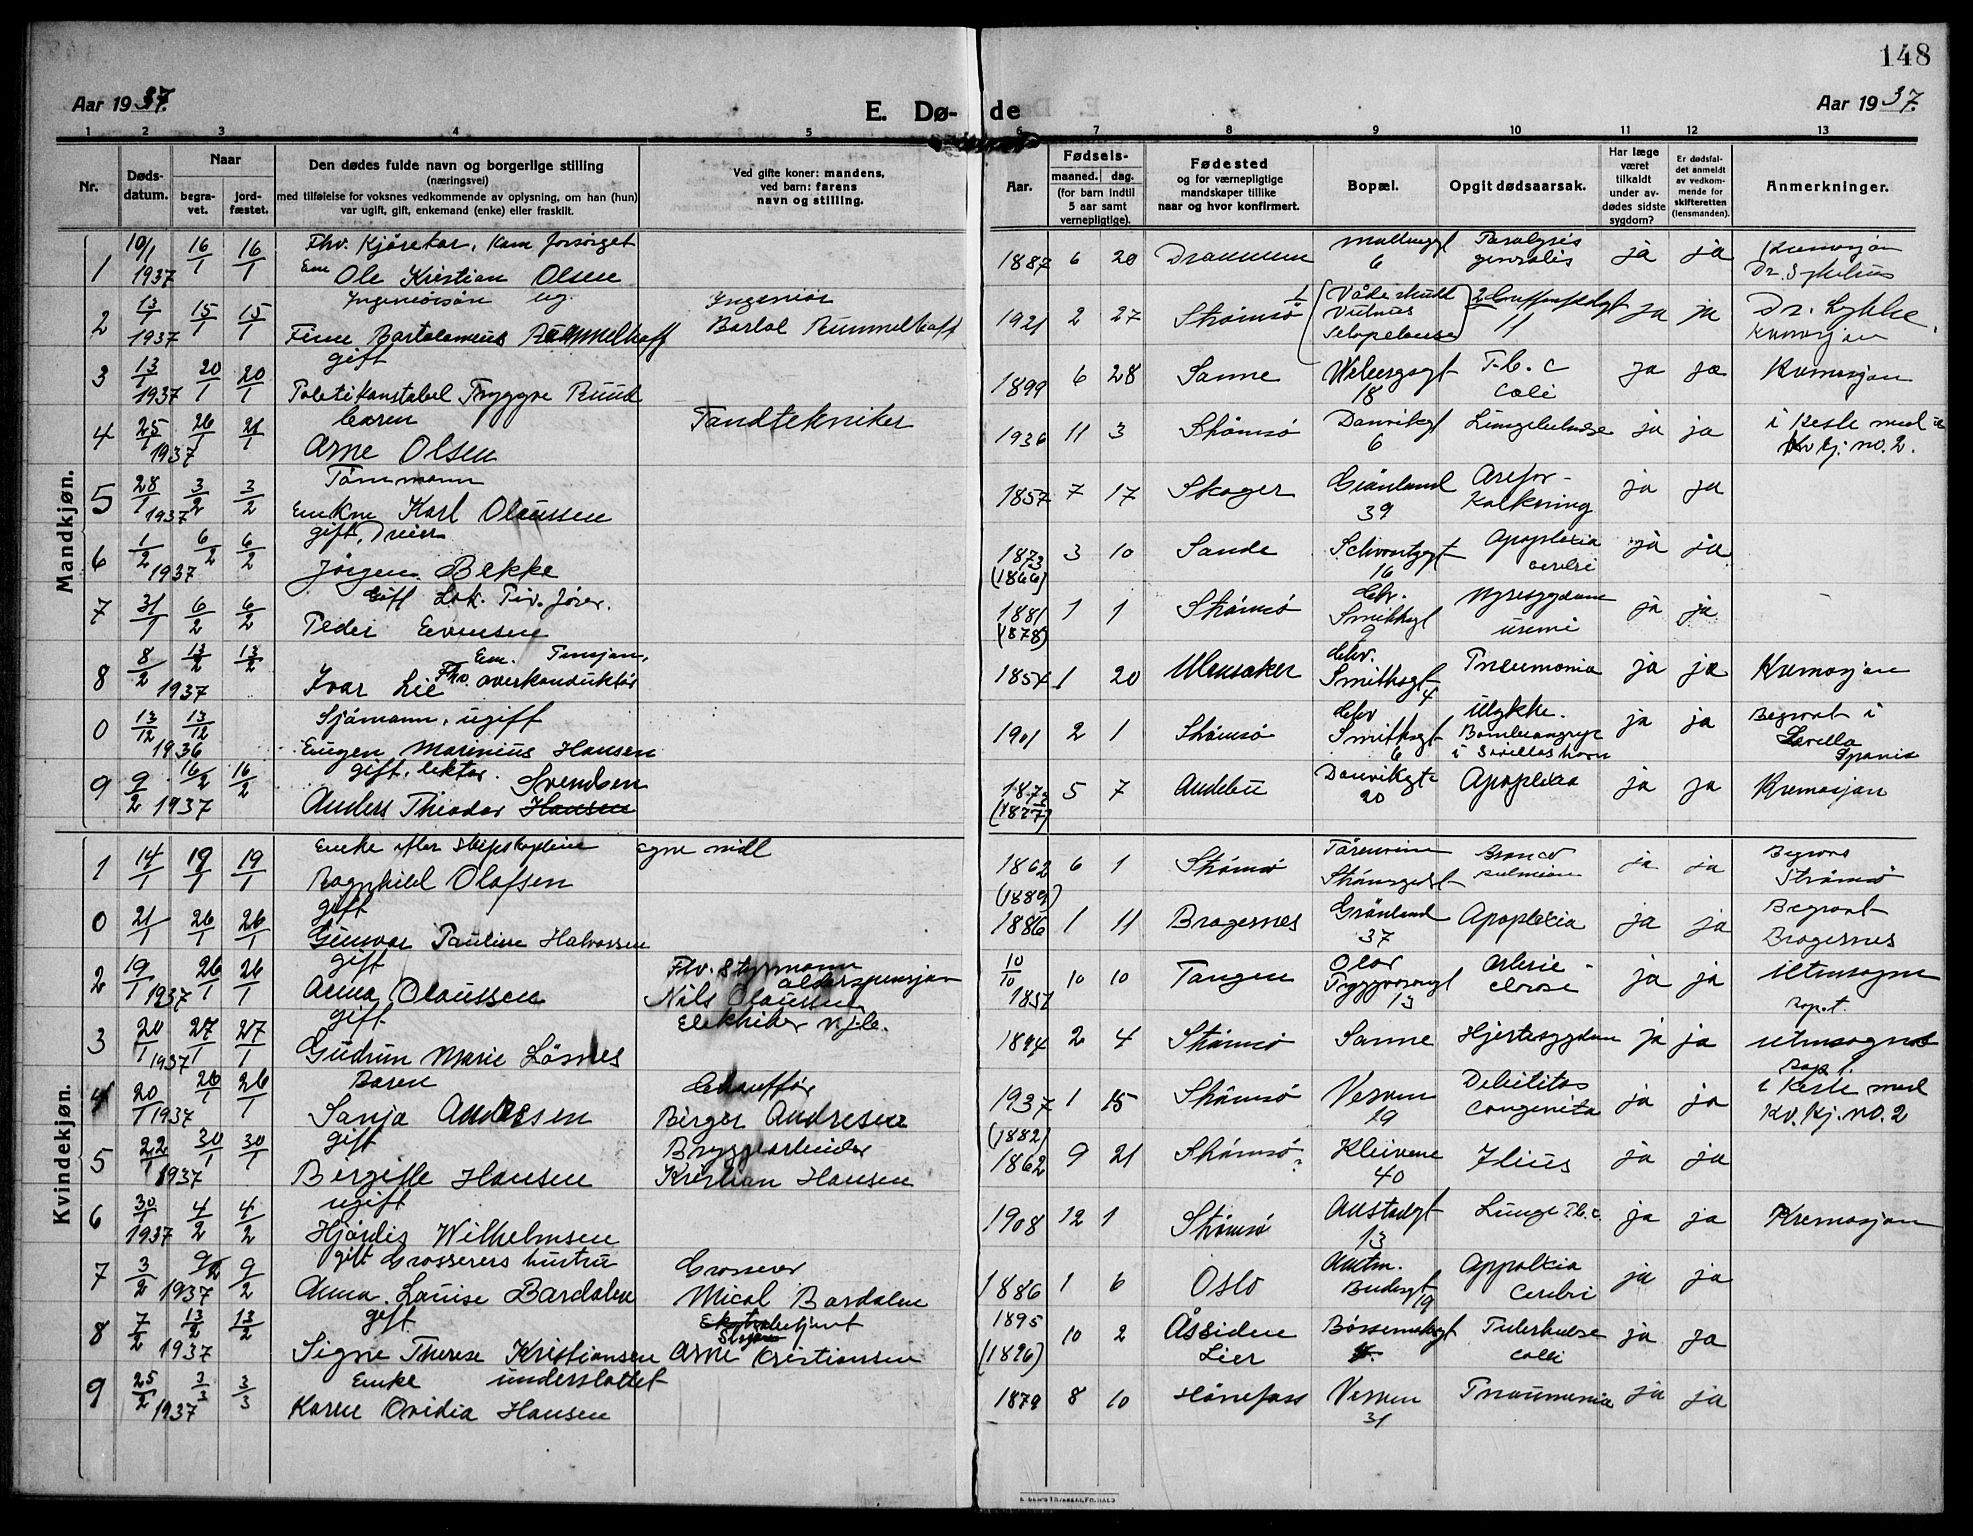 148
Aar 1937.
E. Dø- de
Aar 1937.
1 2 3 4 5 6 7 8 9 10 11 12 13
Nr.
Døds-datum.
Naar
begra-vet.
jord-fæstet.
Den dødes fulde navn og borgerlige stilling
(næringsvei)
med tilføielse for voksnes vedkommende av oplysning, om han (hun)
var ugift, gift, enkemand (enke) eller fraskilt.
Ved gifte koner: mandens,
ved barn: farens
navn og stilling.
Aar.
Fødsels-
maaned. dag.
(for barn indtil
5 aar samt
vernepligtige).
Fødested
og for værnepligtige
mandskaper tillike
naar og hvor konfirmert.
Bopæl.
Opgit dødsaarsak.
Har læge
været
tilkaldt
under av-
dødes sidste
sygdom?
Er dødsfal-
det anmeldt
av vedkom-
mende for
skifteretten
(lensmanden).
Anmerkninger.
Mandkjøn.
1 10/1 1937 16/1 16/1 Fhv. Kjøretar, Kom forsørget
Em Ole Kristian Olsen 1887 6 20 Drammen 6 Paralysis generalis ja ja
2 13/1 1937 15/1 15/1 Ingeniørsøn ug. Ingeniør
Finn Bartolomeus Rummelhoff Bartol Rummelhoff 1921 2 27 Strømsø ja ja
3 13/1 1937 20/1 20/1 gift
Politikonstabel Tryggve Ruud 1899 6 28 Sanne 18 T.b.c coli ja ja Kremasjon
4 25/1 1937 26/1 21/1 barn Tandtekniker
Arne Olsen 1936 11 3 Strømsø Danvikgt 6 ja ja i Keste med Kv kj. no. 2.
5 28/1 1937 3/2 3/2 Tømmann
Enkm Karl Olaussen 1857 7 17 Skoger Grønland 39 Arefor-Kalkning ja ja
6 1/2 1937 6/2 6/2 gift, Dreier
Jørgen Bekke 1873 (1866) 3 10 Sande Schwartzgt 16 Apoplexia cerebri ja ja
7 31/1 6/2 6/2 Gift Lok.
Peder Evensen 1881 (1878) 1 1 Strømsø Chr. Smithsgt 9 Nyresygdom uremi ja ja
8 8/2 1937 13/2 13/2 Em. Pensjon.
Ivar Lie Fhv. overkonduktør 1857 1 20 Ulensaker Chr. Smithsgt 4 Pneumonia ja ja Kremasjon
0 13/12 1936 13/12 Sjømann, ugift
Eugen Marinius Hansen 1901 2 1 Strømsø Chr Smithsgt 6 Ulykke. Bombeangrep i ja ja Begravet i Sevilla Spania
9 9/2 1937 16/2 16/2 gift, lektor. Svendsen
Anders Theodor Hansen (1877) 5 7 Andebu Danvikgt 20 Apoplexia ja ja Kremasjon
Kvindekjøn.
1 14/1 19/1 19/1 Enke efter Skipskaptein egne midl
Ragnhild Olafsen 1862 6 1 Strømsø ja ja Strømsø
0 21/1 26/1 26/1 gift
Gunvor Pauline Halvorsen (1889) 1886 1 11 Bragernes Grønland 37 Apoplexia ja ja Begravet Bragernes
2 19/1 1937 26/1 26/1 gift Fhv. Styrmann alderspensjon
Anna Olaussen Nils Olaussen 10/10 1857 10 10 Tangen Olav Tryggvasonsgt 13 Arterie-clerose ja ja utensogns
3 20/1 1937 27/1 27/1 gift
Gudrun Marie Løsnes 1894 2 4 Strømsø Sanne Hjertesygdom ja ja utensogns
4 20/1 1937 26/1 26/1 Baren Chauffør
Sanja Andresen Birger Andresen 1937 1 15 Strømsø 19 Debilitas Congenita ja ja i Keste med Kv. Kj. no. 2
5 22/1 1937 30/1 30/1 gift Bryggearbeider
Bergitte Hansen Kristian Hansen (1882) 1862 9 21 Strømsø? Kleivene 40 Ilius ja ja
6 30/1 1937 4/2 4/2 ugift
Hjørdis Wilhelmsen 1908 12 1 Strømsø Austadgt 13 Lunge Tb.c ja ja Kremasjon
7 3/2 1937 9/2 9/2 gift Grosserers hustru Grosserer
Anna Louise Bardalen Mical Bardalen 1886 1 6 Oslo 19 Appolexia Cerebri ja ja
8 7/2 1937 13/2 13/2 gift
Signe Therese Kristiansen Arne Kristiansen 1895 (1896) 10 2 Åssiden Lier ja ja
9 25/2 1937 3/3 3/3 Enke understøttet
Karen Ovidia Hansen 1879 8 10 Hønefoss 31 Pnaumonia ja ja